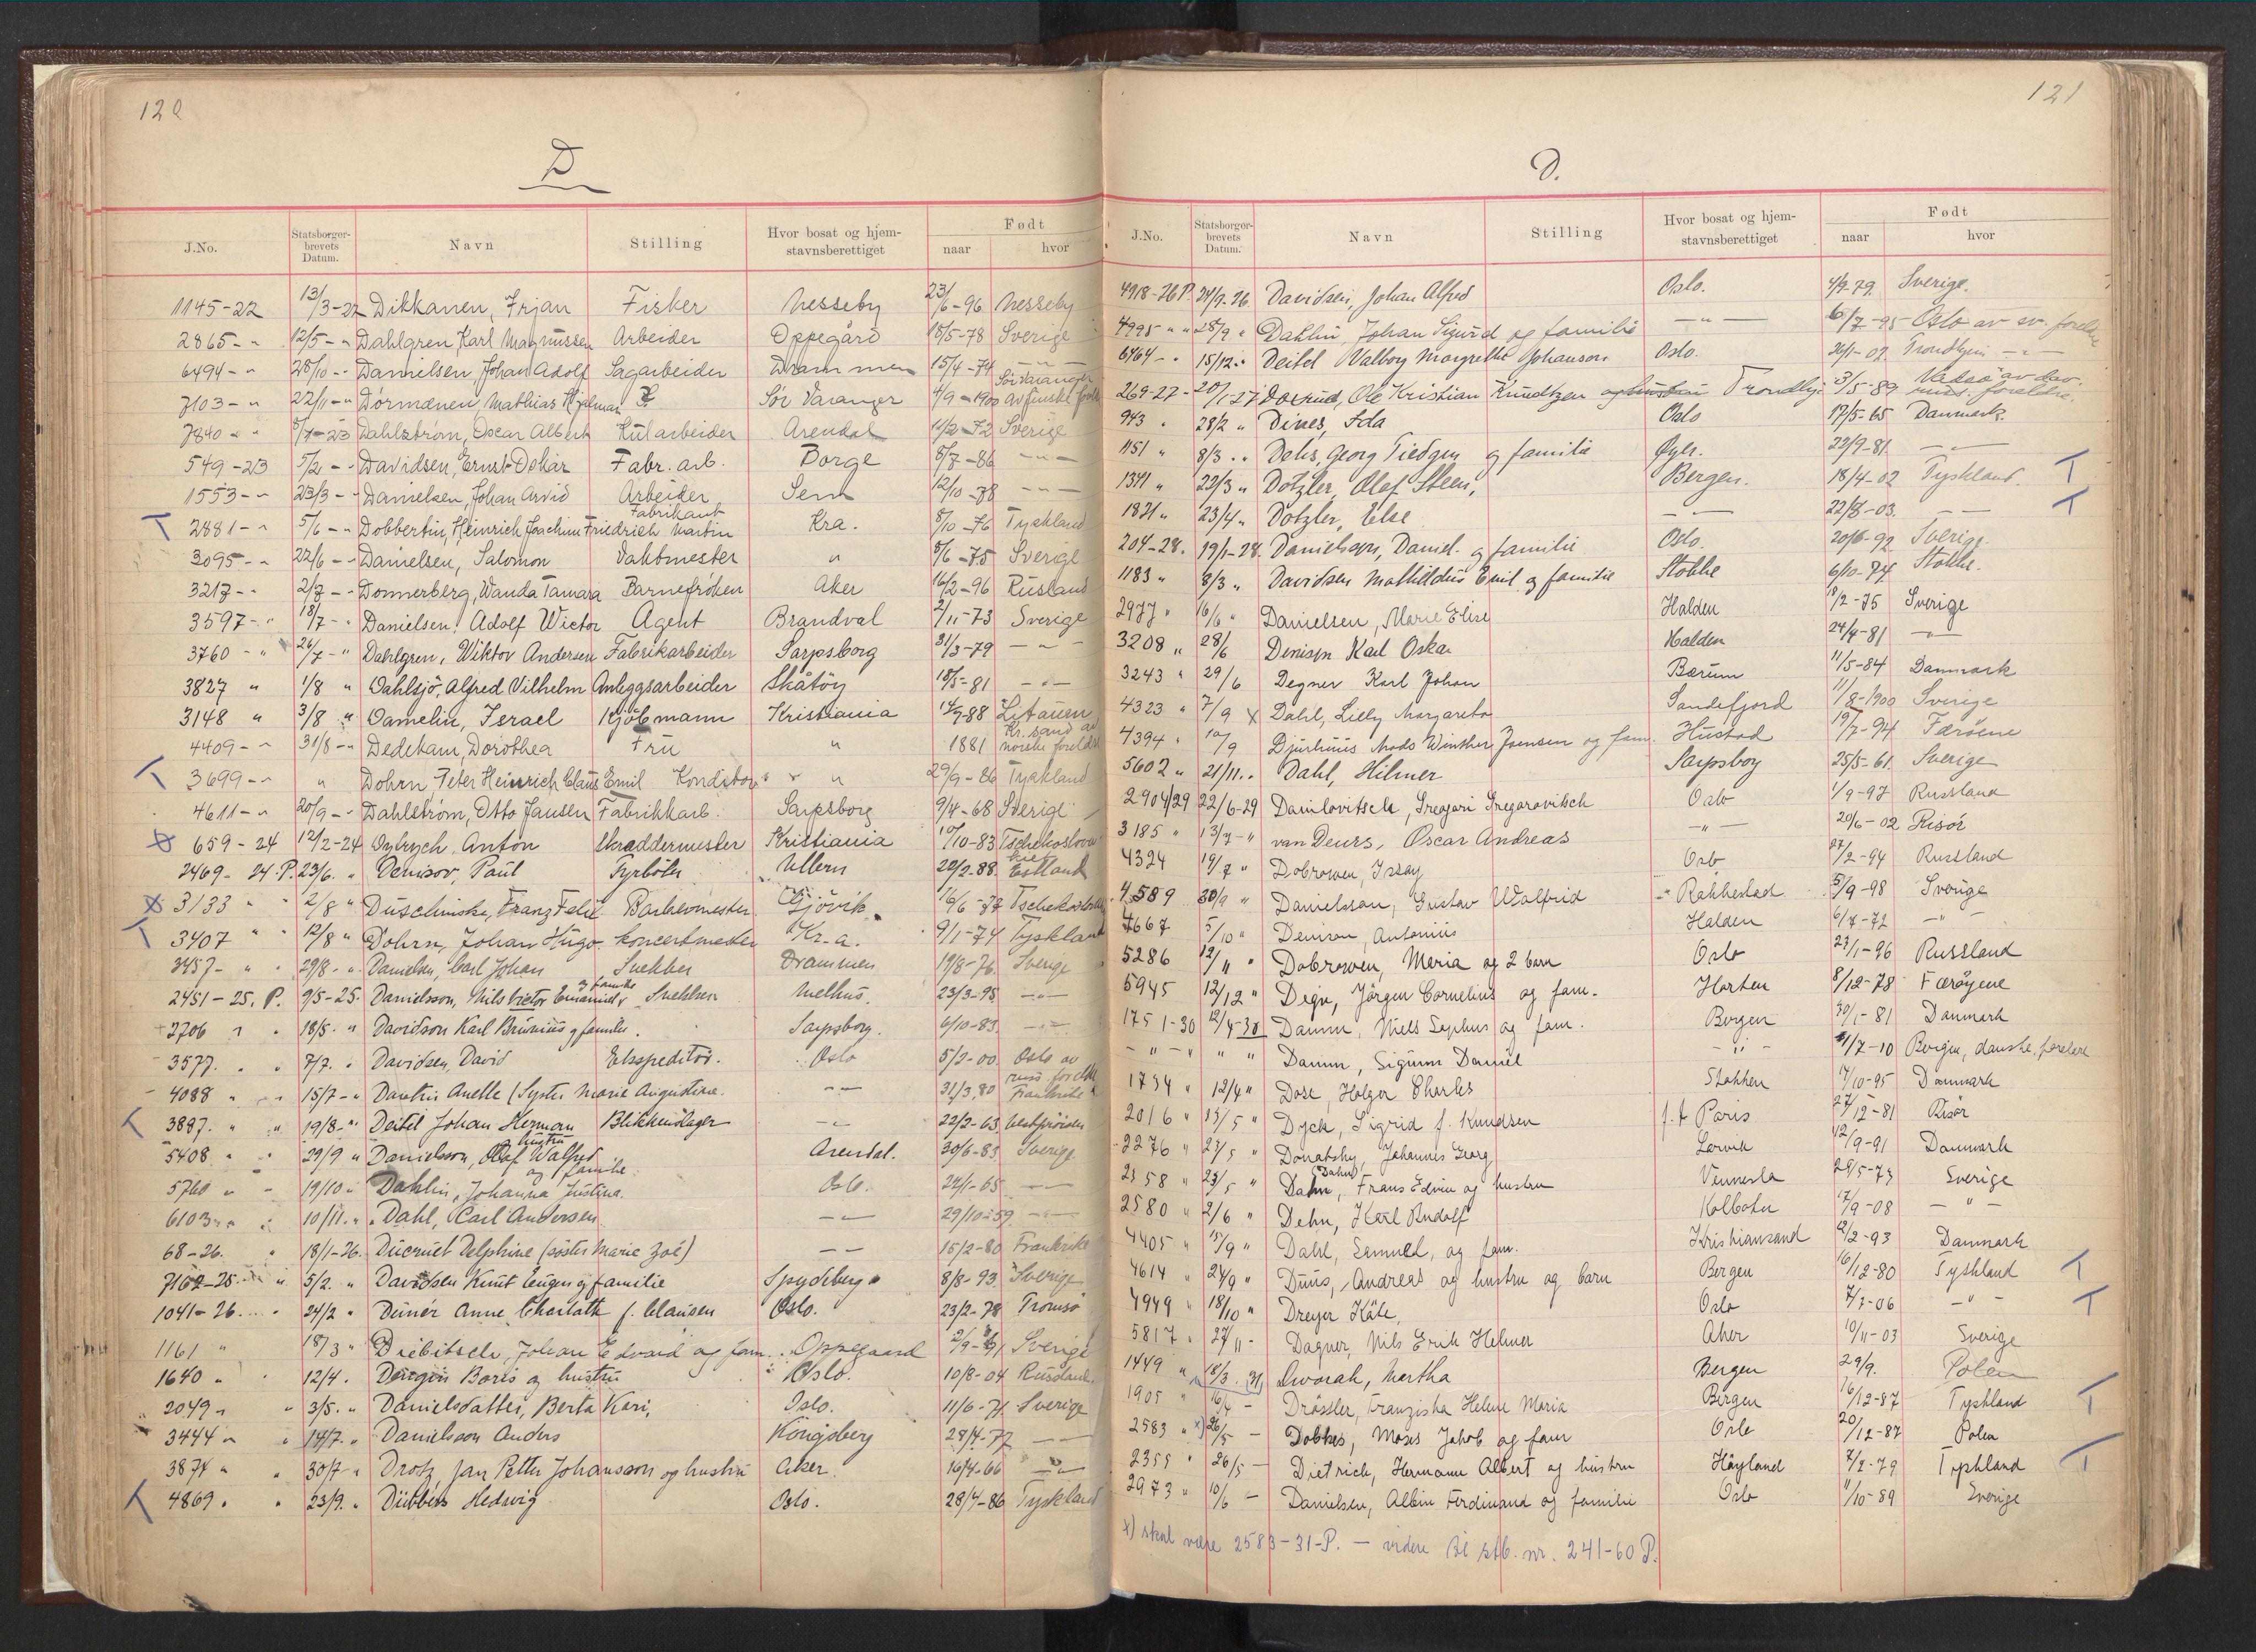 120
D
J.No. Statsborger-brevets Datum. Navn Stilling Hvor bosat og hjem-stavnsberettiget Født naar hvor
1145-22 13/3-22 Dikkanen, Frjan Fisker Nesseby 23/6-96 Nesseby
2865-" 12/5-" Dahlgren, Karl Magnussen Arbeider Oppegård 18/5-78 Sverige
6494-" 28/10-" Danielsen, Johan Adolf Sagarbeider Drammen 15/4-74 -"-
7103-" 22/11-" Dørmænen, Mathias Hjalmar Sør Varanger 4/9-1900 Sør Varanger av finske
7840-" 5/7-23 Dahlstrøm, Oscar Albert Kularbeider Arendal 11/2-72 Sverige
549-23 5/2-" Davidsen, Ernst Oskar Fabr. arb. Borge 8/7-86 -"-
1553-" 23/3-" Danielsen, Johan Arvid Arbeider Sem 12/10-78 -"-
T 2881-" 5/6-" Dobbertin, Heinrich Joachim Friedrich Martin Fabrikant Kra. 8/10-76 Tyskland
3095-" 22/6-" Danielsen, Salomon Vaktmester " 8/6-75 Sverige
3217-" 2/7-" Donnerberg, Wanda Tamara Barnefrøken Aker 16/2-96 Rusland
3597-" 18/7-" Danielsen, Adolf Wictor Agent Brandval 2/11-73 Sverige
3760-" 26/7-" Dahlgren, Wiktor Andersen Fabrikarbeider Sarpsborg 31/3-79 -"-
3827 " 1/8 " Dahlsjö, Alfred Vilhelm Anleggsarbeider Skåtøy 18/5-81 -"-
3148 " 3/8 " Damelin, Israel Kjøbmann Kristiania 14/7-88 Litauen
4409-" 31/8-" Dedekam, Dorothea Fru " 1881 Kr.sand av norske foreldre
T 3699-" " Dohrn, Peter Heinrich Claus Emil Konditor " 29/9-86 Tyskland
4611-" 20/9-" Dahlstrøm, Otto Jansen Fabrikkarb. Sarpsborg 9/4-68 Sverige
659-24 12/2-24 Dybrych, Anton Skreddermester Kristiania 10/10-83 Tschekoslova
2469-24.P. 23/6. " Denisov, Paul Fyrbøter Ullern 22/2-88. Estland
3133 " " 2/8 " Duschinske, Franz Felix Barbermester Gjövik 16/6-87 Tschekoslov
T 3407 " " 12/8 " Dohrn, Johan Hugo koncertmester Kr.a. 9/1-74 Tyskland
3457- " " 29/8-" Danielsen, Carl Johan Snekker Drammen 19/8-76. Sverige
2451-25. P. 9/5-25. Danielsson, Nils Victor Emanuel og familie Snekker Melhus. 23/3-95 -"-
2706 " " 18/5. " Davidson Karl Brunius og familie. Sarpsborg. 6/10-83 -"-
3577. " " 7/7. " Davidsen, David Ekspeditør. Oslo 5/2-00. Oslo av russ foreldre
4088 " " 15/7-" Dantin Anette (Syster Marie Augustine. -"- 31/3.80 Frankrike
T 3887. " " 19/8-" Deitel Johan Herman Blikkenslager -"- 22/2-63
5408 " " 29/9 " Danielsson, Olaf Walfred og hustru Arendal. 30/6-83 Sverige
5760 " " 19/10 " Dahlin, Johanna Justina. og familie Oslo. 24/1-65 -"-
6103 " " 10/11. " Dahl, Carl Andersen -"- 29/10-59. -"-
68-26. " 18/1-26. Ducruet Delphine (søster Marie Zoé) -"- 15/2-80 Frankrike
7162-25. " 5/2. " Davidsen Knut Eugen og familie Spydeberg 8/8-93 Sverige
1041-26. " 24/2 " Dunér Anne Charlotth f. Clausen Oslo. 23/2-78 Tromsø
1161 " 18/3 " Diebitsch, Johan Edvard og fam. Oppegaard 2/9-91 Sverige
1640 " " 12/4. Boris og hustru Oslo. 10/8-04 Rusland.
2049 " " 3/5. " Danielsdatter, Berta Kari, Oslo. 11/6-71 Sverige
3444 " " 14/7. " Danielsson Anders Kongsberg 28/4-77 -"-
3874 " " 30/7-" Drotz, Jan Petter Johansson og hustru Aker. 16/4-66 -"-
T 4869. " 23/9. " Dübbers Hedwig Oslo. 28/4-86 Tyskland
121
D.
J.No. Statsborger-brevets Datum. Navn Stilling Hvor bosat og hjem-stavnsberettiget Født naar hvor
4918-26P. 24/9.26. Davidsen, Johan Alfred Oslo. 4/9.79. Sverige.
4995 " " 28/9 " Dahlin, Johan Sigurd og familie -"- 6/7-95 Oslo av sv. foreldre
6464-" 15/12. " Deitel Valborg Margrethe Johanson Oslo. 26/1-02 Trondhjem -"-
269-27- 20/1-27 Dørrud, Ole Kristian Knudtzen og hustru Trondhj. 3/5-89 Vadsø av foreldre.
943 " 28/2 " Dines, Ida Oslo 17/5-65 Danmark.
1151 " 8/3. " Dehs, Georg Tiedgen og familie 22/9-81 -"-
1341 " 22/3 " Dotzler, Olaf Steen, Bergen. 18/4-02 Tyskland. T
1821 " 23/4 " Dotzler, Else -"- 22/8-03. -"- T
204-28. 19/1-28. Danielsen, Daniel. og familie Oslo. 20/6-92 Sverige.
1183 " 8/3 " Davidsen Mathildus Emil og familie Stokke 6/10-74 Stokke.
2977 " 16/6 " Danielsen, Marie Elise Halden 18/2-75 Sverige
3208 " 28/6 Denisen Karl Oskar Halden 24/4-81 -"-
3243 " 29/6 Degner Karl Johan Bærum 11/5-84 Danmark
4323 " 7/9 x Dahl, Lilly Margareta Sandefjord 11/8-1900 Sverige
4394 " 10/9 Djurhuus Mads Winther Joensen og fam. Hustad 19/7-94 Færöene
5602 " 21/11. " Dahl, Hilmer Sarpsborg 25/5-61. Sverige
2904/29 22/6-29 Danilovitsch, Gregori Gregorovitsch Oslo 1/9-97 Russland
3185 " 13/7-" van Deurs, Oscar Andreas -"- 20/6-02 Risör
4324 19/7 " Dobrowen, Issay Oslo 27/2-94 Russland
4589 30/9 " Danielsson, Gustav Walfrid Rakkestad 5/9-98 Sverige
4667 5/10 " Denison, Antonius Halden 6/7-72 -"-
5286 12/11 " Dobrowen, Maria og 2 barn Oslo 23/1-96 Russland
5945 12/12 " Degn, Jörgen Cornelius og fam. Horten 8/12-78 Færøyene
1751-30 12/4-30 Damm, Niels Sophus og fam. Bergen 30/1-81 Danmark
-"- " " Damm, Sigurm Daniel -"- 1/7-10 Bergen, danske foreldre
1734 " 12/4 " Dose, Holger Charles Stokken 14/10-95 Danmark
2016 " 13/5 " Dyck, Sigrid f. Knudsen f.t Paris 27/12-81 Risör
2276 " 23/5 " Donatsky, Johannes Georg Larvik 12/9-91 Danmark
2358 " 23/5 " Dahn (Dahn), Frans Edvin og hustru Vennesla 29/5-73 Sverige
2580 " 2/6 " Dehn, Karl Rudolf Kolbotn 17/9-08 -"-
4405 " 15/9 " Dahl, Samuel, og fam. Kristiansand 12/2-93 Danmark
4614 " 24/9 " Duus, Andreas og hustru og barn Bergen 16/12-80 Tyskland T
4949 " 18/10 " Dreyer Käte, Oslo 7/7-06 -"- T
5817 " 27/11 - Dagner, Nils Erik Helmer Aker 10/11-03 Sverige
1449 " 18/3. (31) Dworak, Martha Bergen 29/9. Polen
1905 " 16/4 - Drössler, Franziska Helene Maria Bergen 16/12-87 Tyskland T
2583 " x) 26/5 - Dobkes, Moses Jakob og fam Oslo 20/12-87 Polen
2355 " 26/5 - Dietrich, Hermann Albert og hustru Høyland 7/2-79 Tyskland T
2973 " 10/6 - Danielsen, Albin Ferdinand og familie Oslo 11/10-89 Sverige
x) skal være 2583-31-P. - videre til stb. nr. 241-60 P.